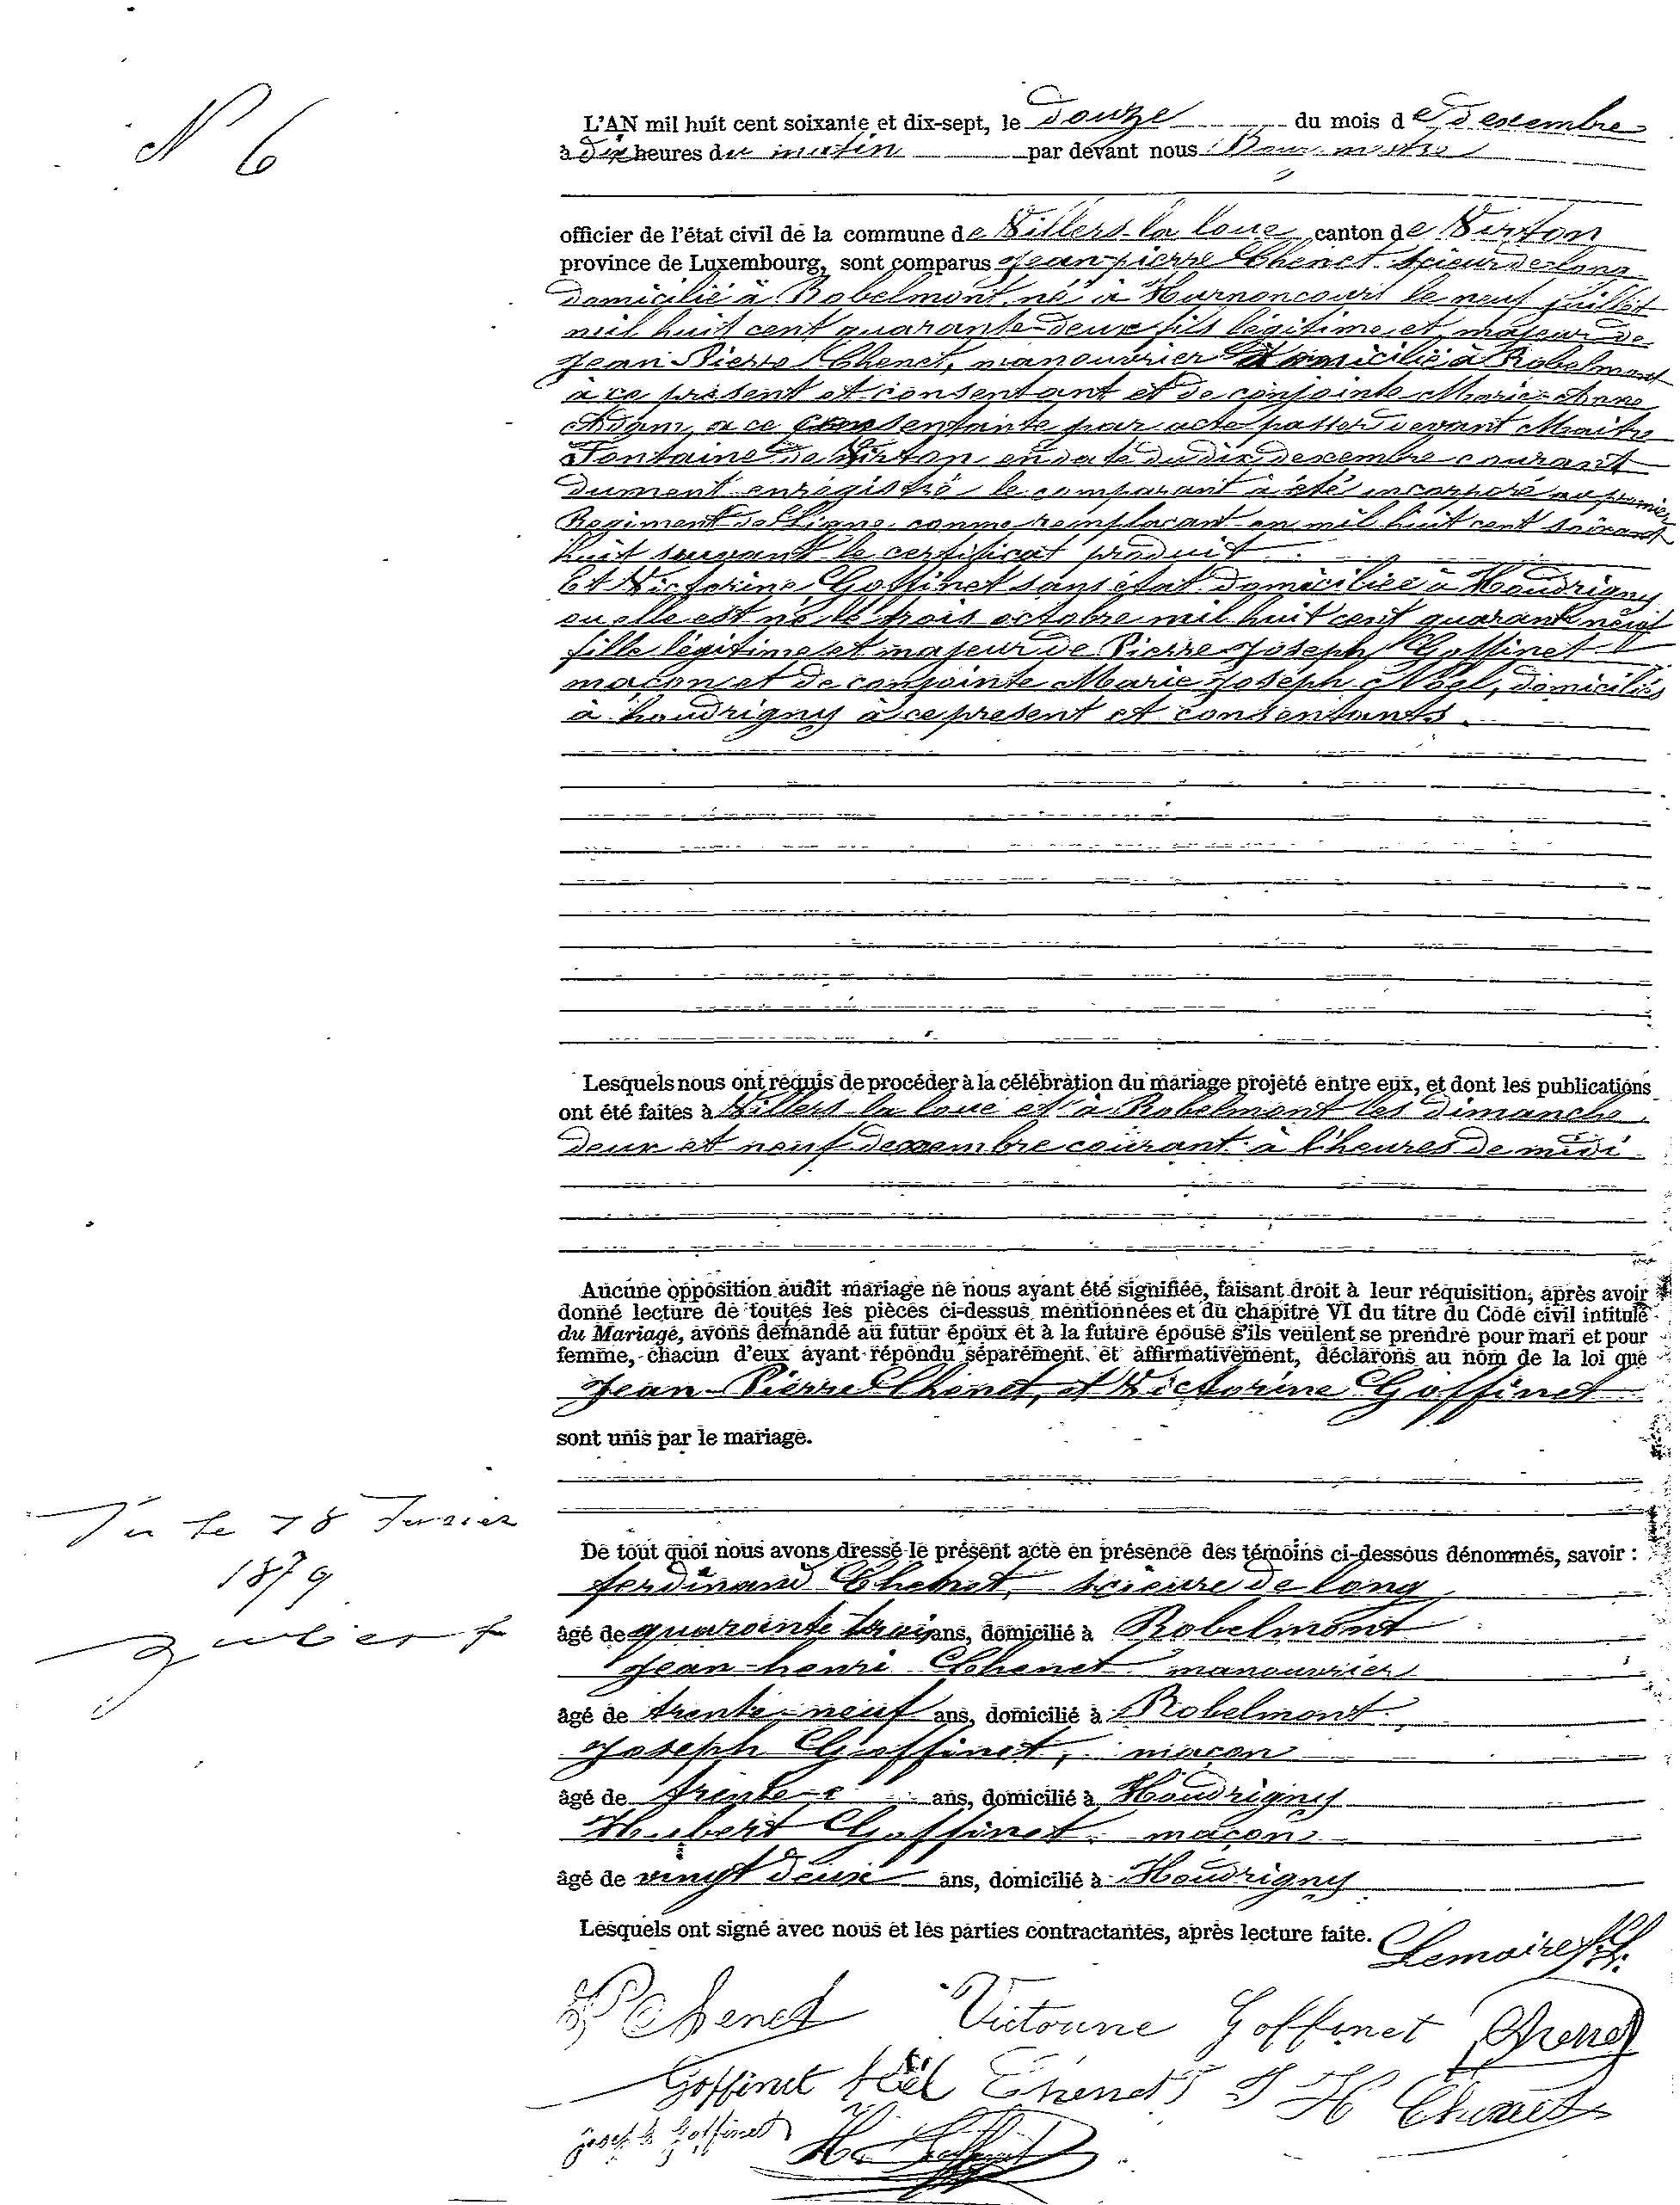 N 6
L'AN mil huit cent soixante et dix-sept, le douze du mois de decembre
à dix heures du matin par devant nous Bourgmestre
officier de l'état civil de la commune de Villers-la-loue canton de Virton
province de Luxembourg, sont comparus Jean-pierre Chenet scieur de long
domicilié à Robelmont né à Harnoncourt le neuf juillet
mil huit cent quarante-deux fils légitime et majeur de
Jean Pierre Chenet, manouvrier domicilié à Robelmont
à ce présent et consentant et de conjointe Marie-Anne
Adam, a ce consentante par acte passer devant Maitre
Fontaine de Virton en date du dix decembre courant
dument enrégistré, le comparant a été incorporé au premier
Regiment de Ligne comme remplacant en mil huit cent soixante
huit suivant le certificat produit
Et Victorine Goffinet sans état domiciliée à Houdrigny
ou elle est né le trois octobre mil huit cent quarante neuf
fille légitime et majeur de Pierre Joseph Goffinet
maçon et de conjointe Marie Joseph Noël, domiciliés
à houdrigny à ce present et consentants.
Lesquels nous ont requis de procéder à la célébration du mariage projeté entre eux, et dont les publications
ont été faites à Villers-la-loue et à Robelmont les dimanche
deux et neuf decembre courant à l'heures de midi
Aucune opposition audit mariage ne nous ayant été signifiée, faisant droit à leur réquisition, après avoir
donné lecture de toutes les pièces ci-dessus mentionnées et du chapitre VI du titre du Code civil intitulé
du Mariage, avons demandé au futur époux et à la future épouse s'ils veulent se prendre pour mari et pour
femme, chacun d'eux ayant répondu séparément et affirmativement, déclarons au nom de la loi que
Jean-Pierre Chenet, et Victorine Goffinet
sont unis par le mariage.
Vu le 18 Fevrier
1879
De tout quoi nous avons dressé le présent acte en présence des témoins ci-dessous dénommés, savoir :
ferdinand Chenet, scieure de long
âgé de quarainte trois ans, domicilié à Robelmont
Jean-henri Chenet manouvrier
âgé de trente-neuf ans, domicilié à Robelmont
Joseph Goffinet, maçon
âgé de trente ans, domicilié à Houdrigny
Hubert Goffinet, maçon
âgé de vingt deux ans, domicilié à Houdrigny
Lesquels ont signé avec nous et les parties contractantes, après lecture faite. Lemaire
JP Chenet Victorine Goffinet Chenet
Goffinet Chenet J H Chenet
Joseph Goffinet H. Goffinet